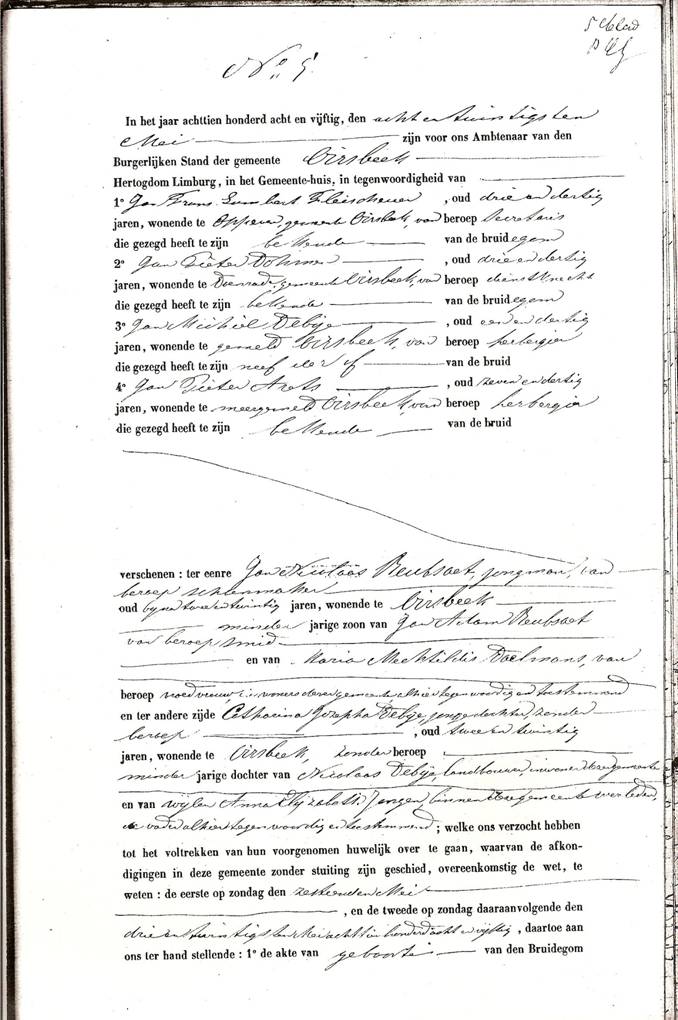 5 blad
No. 5.
In het jaar achttien honderd acht en vijftig, den acht en twintigsten
Mei zijn voor ons Ambtenaar van den
Burgerlijken Stand der gemeente Oirsbeek
Hertogdom Limburg, in het Gemeente-huis, in tegenwoordigheid van
1º Jan Frans Lambert Fleischeuer , oud drie en dertig
jaren, wonende te Oppeven, gemeente Oirsbeek, van beroep secretaris
die gezegd heeft te zijn bekende van de bruidegom
2º Jan Pieter Dohmen , oud drie en dertig
jaren, wonende te Doenrade, gemeente Oirsbeek, van beroep dienstknecht
die gezegd heeft te zijn bekende van de bruidegom
3º Jan Michiel Debije , oud een en dertig
jaren, wonende te gemeld Oirsbeek, van beroep herbergier
die gezegd heeft te zijn neef van de bruid
4º Jan Pieter , oud zeven en dertig
jaren, wonende te meergemeld Oirsbeek, van beroep herbergier
die gezegd heeft te zijn bekende van de bruid
verschenen : ter eenre Jan Nicolaas Reubsaet, jongman, van
beroep schoenmaker
oud bijna twee en twintig jaren, wonende te Oirsbeek
minder jarige zoon van Jan Adam Reubsaet
van beroep smid
en van Maria Mechtildis Doelmans, van
beroep vroedvrouw, inwoners dezer gemeente alhier tegenwoordig en toestemmend
en ter andere zijde Catharina Josepha Debije, jonge dochter, zonder
beroep , oud twee en twintig
jaren, wonende te Oirsbeek, zonder beroep
minder jarige dochter van Nicolaas Debije, landbouwer, inwoner dezer gemeente
en van wijlen Anna Jongen, binnen deze gemeente overleden,
de vader alhier tegenwoordig en toestemmend ; welke ons verzocht hebben
tot het voltrekken van hun voorgenomen huwelijk over te gaan, waarvan de afkon-
digingen in deze gemeente zonder stuiting zijn geschied, overeenkomstig de wet, te
weten : de eerste op zondag den zestienden Mei
, en de tweede op zondag daaraanvolgende den
drie en twintigsten Mei achttien honderd acht en vijftig , daartoe aan
ons ter hand stellende : 1º de akte van geboorte van den Bruidegom